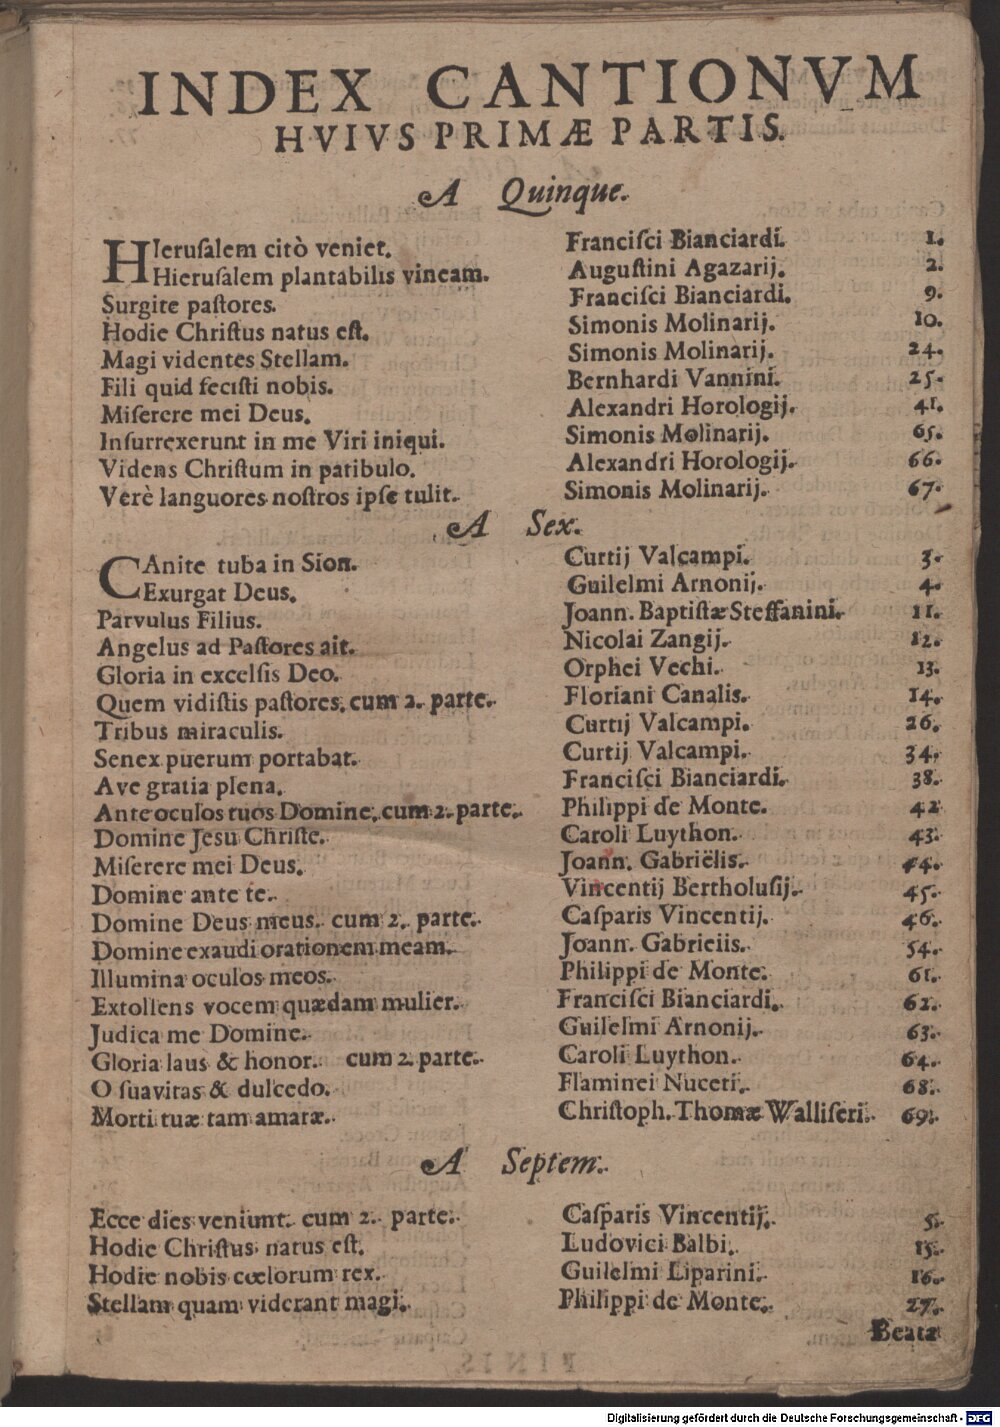 INDEX CANTIONVM
HVIVS PRIMÆ PARTIS.
A Quinque.
HIeruſalem citò veniet. Franciſci Bianciardi. 1.
Hieruſalem plantabilis vineam. Auguſtini Agazarij. 2.
Surgite paſtores. Franciſci Bianciardi. 9.
Hodie Chriſtus natus eſt. Simonis Molinarij. 10.
Magi videntes Stellam. Simonis Molinarij. 24.
Fili quid feciſti nobis. Bernhardi Vannini. 25.
Miſerere mei Deus. Alexandri Horologij. 41.
Inſurrexerunt in me Viri iniqui. Simonis Molinarij. 65.
Videns Chriſtum in patibulo. Alexandri Horologij. 66.
Verè languores noſtros ipſe tulit. Simonis Molinarij. 67.
A Sex.
CAnite tuba in Sion. Curtij Valcampi. 3.
Exurgat Deus. Guilelmi Arnonij. 4.
Parvulus Filius. Joann. Baptiſtæ Steffanini. 11.
Angelus ad Paſtores ait. Nicolai Zangij. 12.
Gloria in excelſis Deo. Orphei Vechi. 13.
Quem vidiſtis paſtores. cum 2. parte. Floriani Canalis. 14.
Tribus miraculis. Curtij Valcampi. 26.
Senex puerum portabat. Curtij Valcampi. 34.
Ave gratia plena. Franciſci Bianciardi. 38.
Ante oculos tuos Domine. cum 2. parte. Philippi de Monte. 42
Domine Jesu Chriſte. Caroli Luython. 43.
Miſerere mei Deus. Joann. Gabriëlis. 44.
Domine ante te. Vincentij Bertholuſij. 45.
Domine Deus meus. cum 2. parte. Caſparis Vincentij. 46.
Domine exaudi orationem meam. Joann. Gabrielis. 54.
Illumina oculos meos. Philippi de Monte. 61.
Extollens vocem quædam mulier. Franciſci Bianciardi. 62.
Judica me Domine. Guilelmi Arnonij. 63.
Gloria laus & honor. cum 2. parte. Caroli Luython. 64.
O ſuavitas & dulcedo. Flaminei Nuceti. 68.
Morti tuæ tam amaræ. Chriſtoph. Thomæ Walliſeri. 69.
A Septem.
Ecce dies veniunt. cum 2. parte. Caſparis Vincentij. 5.
Hodie Chriſtus natus eſt. Ludovici Balbi. 15.
Hodie nobis cœlorum rex. Guilelmi Liparini. 16.
Stellam quam viderant magi. Philippi de Monte. 27.
Beata
Digitalisierung gefördert durch die Deutsche Forschungsgemeinschaft - DFG